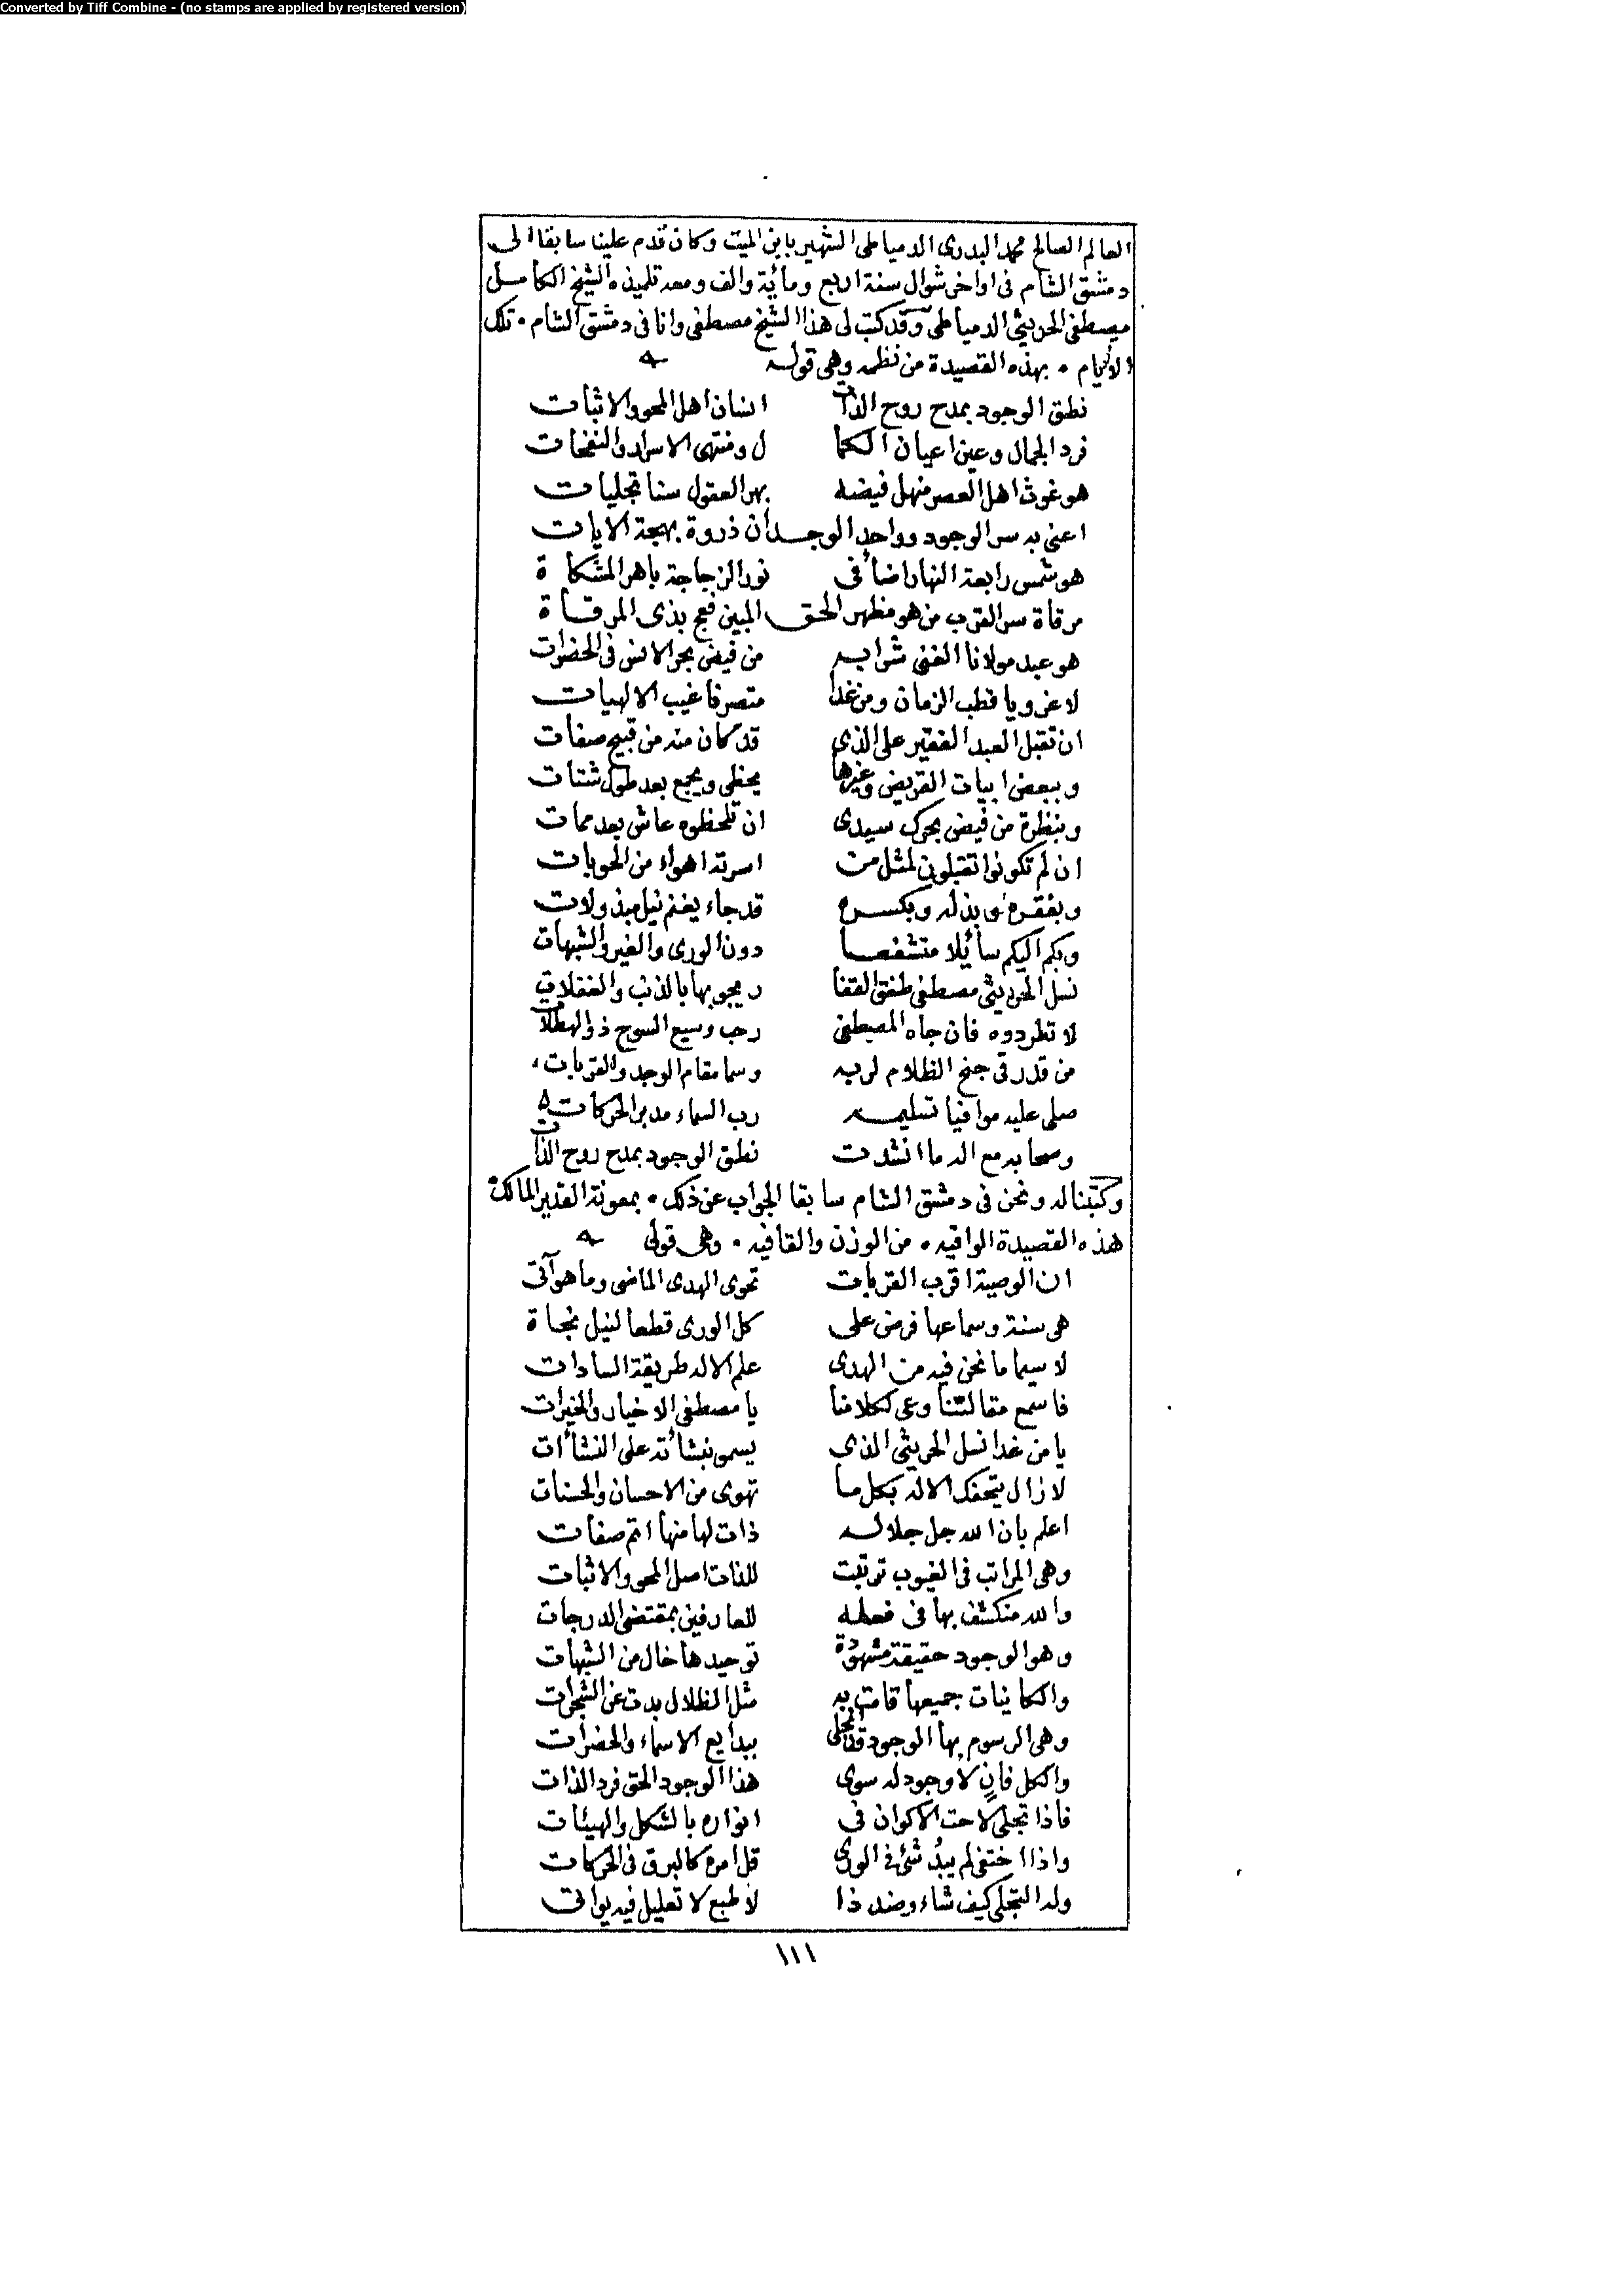 Converted by Tiff Combine - (no stamps are applied by registered version)
العالم الصالح محمد البدرى الدمياطى الشهير بابن الميت وكان قدم علينا سابقا الى
دمشق الشام فى اواخر شوال سنة اربع ومائة والف ومعه تلميذه الشيخ الكامل
مصطفى الحريثى الدمياطى وقد كتب لى هذا الشيخ مصطفى وانا فى دمشق الشام • تلك
الايام • بهذه القصيدة من نظمه وهى قوله
نطق الوجود بمدح روح الذات انسان اهل المحو والاثبات
فرد الجمال وعين اعيان الكما ل ومنتهى الاسرار والنفحات
هو غوث اهل العصر منهل فيضه بهر العقول سنا تجليات
اعنى به سر الوجود وواحد الوجدان ذروة بهجة الايات
هو شمس رابعة النهار اضأ فى نور الزجاجة باهر المشكاة
مرقاة سر القرب من هو مظهر الحق المبين فعج بذى المرقاة
هو عبد مولانا الغنى شرابه من فيض بحر الانس فى الحضرات
لا غرو يا قطب الزمان ومن غدا متصرفا غيب الالهيات
ان تقبل العبد الفقير على الذى قد كان منه من قبيح صفات
وببعض ابيات القريض وغيرها يحظى ويجمع بعد طول شتات
وبنظرة من فيض بحرك سيدى ان تلحظوه عاش بعد ممات
ان لم تكونوا تقبلون لمثل من اسرته اهواء من الحوبات
وبفقره وبذله وبكسره قد جاء يغنم نيل مبذولات
وبكم اليكم سائلا متشفعا دون الورى والغير والشبهات
نسل الحريثى مصطفى طفق القفا ر يجوبها بالذنب والغفلات
لا تطردوه فان جاه المصطفى رحب وسيع السوح ذو الهطلات
من قد رقى جنح الظلام لربه وسما مقام الوجد والقربات
صلى عليه موافيا تسليمه رب السماء مدبر الحركات
وصحابه مع اله ما انشدت نطق الوجود بمدح روح الذات
وكتبنا له ونحن فى دمشق الشام سابقا الجواب عن ذلك • بمعونة القدير المالك
هذه القصيدة الوافيه • من الوزن والقافيه • وهى قولى
ان الوصية اقرب القربات تحوى الهدى الماضى وما هو آتى
هى سنة وسماعها فرض على كل الورى قطعا لنيل نجاة
لا سيما ما نحن فيه من الهدى علم الاله طريقة السادات
فاسمع مقالتنا وعى لكلامنا يا مصطفى الاخيار والخيرات
يا من غدا نسل الحريثى الذى يسمو بنشأته على النشأات
لا زال يتحفك الاله بكل ما تهوى من الاحسان والحسنات
اعلم بان الله جل جلاله ذات لها منها اتم صفات
وهى المراتب فى الغيوب ترتبت للذات اصل المحو والاثبات
والله منكشف بها فى فعله للعارفين بمقتضى الدرجات
وهو الوجود حقيقة مشهودة توحيدها خال من الشبهات
والكائنات جميعها قامت به مثل الظلال بدت عن الشجرات
وهى الرسوم بها الوجود قد انجلى ببدايع الاسماء والحضرات
والكل فانٍ لا وجود له سوى هذا الوجود الحق فرد الذات
فاذا تجلى لاحت الاكوان فى انواره بالشكل والهيئات
واذا اختفى لم يبدُ شئ فى الورى قل امره كالبرق فى الحركات
وله التجلى كيف شاء وضد ذا لا طبع لا تعليل فيه يواتى
١١١